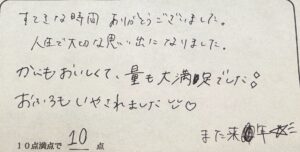 すてきな時間 ありがとうございました。
人生で大切な思い出になりました。
かにもおいしくて、量も大満足でした!
おふろもいやされました♡
10点満点で 10 点
また来年